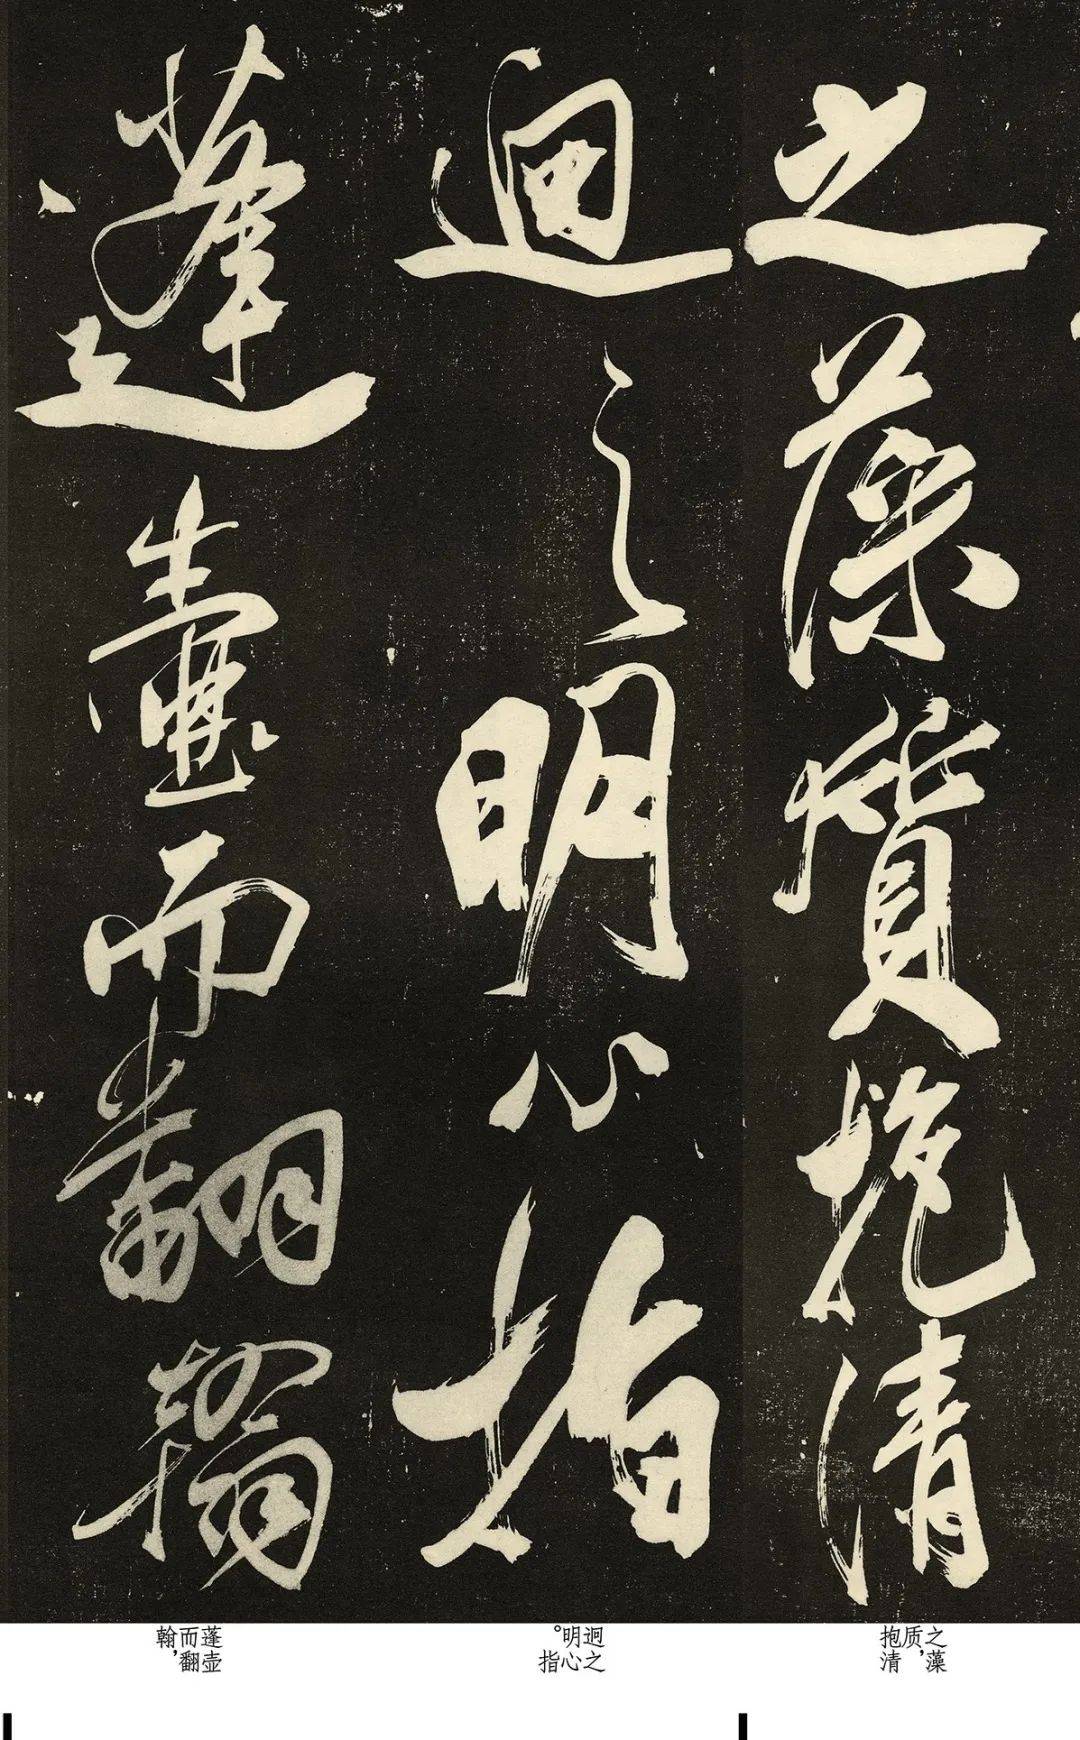 之藻質抱清
迥之明心指
蓬壺而翻翰
之藻
质，
抱清
迥之
明心
。指
蓬壶
而翻
翰，